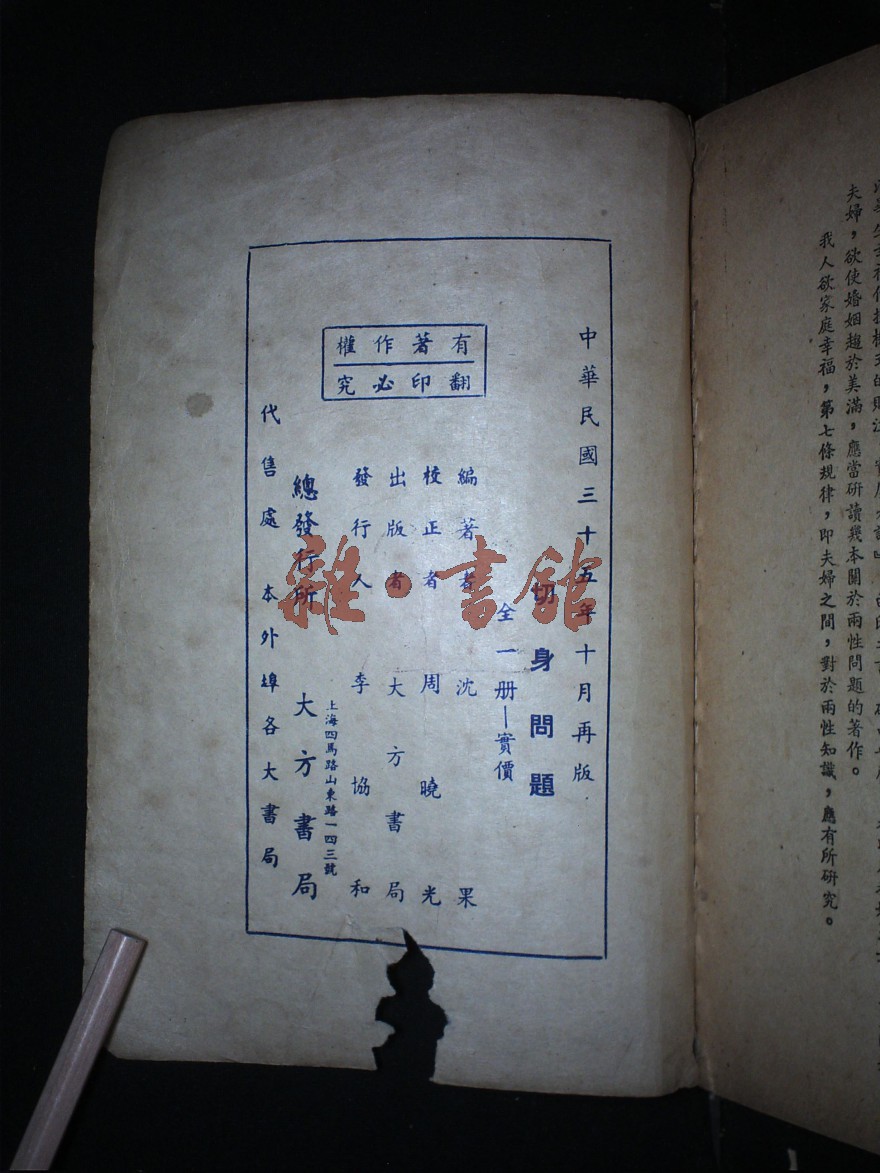 夫婦，欲使婚姻趨於美滿，應當研讀幾本關於兩性問題的著作。
我人欲家庭幸福，第七條規律，即夫婦之間，對於兩性知識，應有所研究。
中華民國三十五年十月再版
切身問題
全一册—實價
有著作權
翻印必究
編著者 沈果
校正者 周曉光
出版者 大方書局
發行人 李協和
上海四馬路山東路一四三號
總發行所 大方書局
代售處 本外埠各大書局
雜·書館